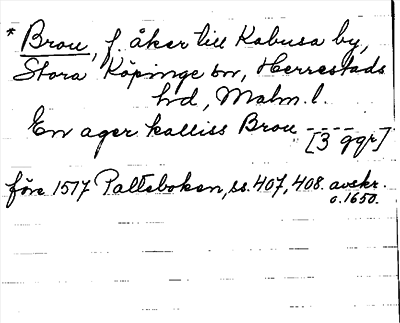 * Brou, f. åker till Kabusa by,
Stora Köpinge sn, Herrestads
hd, Malm. l.
En ager kalliss Brou ----
[3 ggr]
före 1517 Palteboken, ss. 407, 408. avskr.
c. 1650.